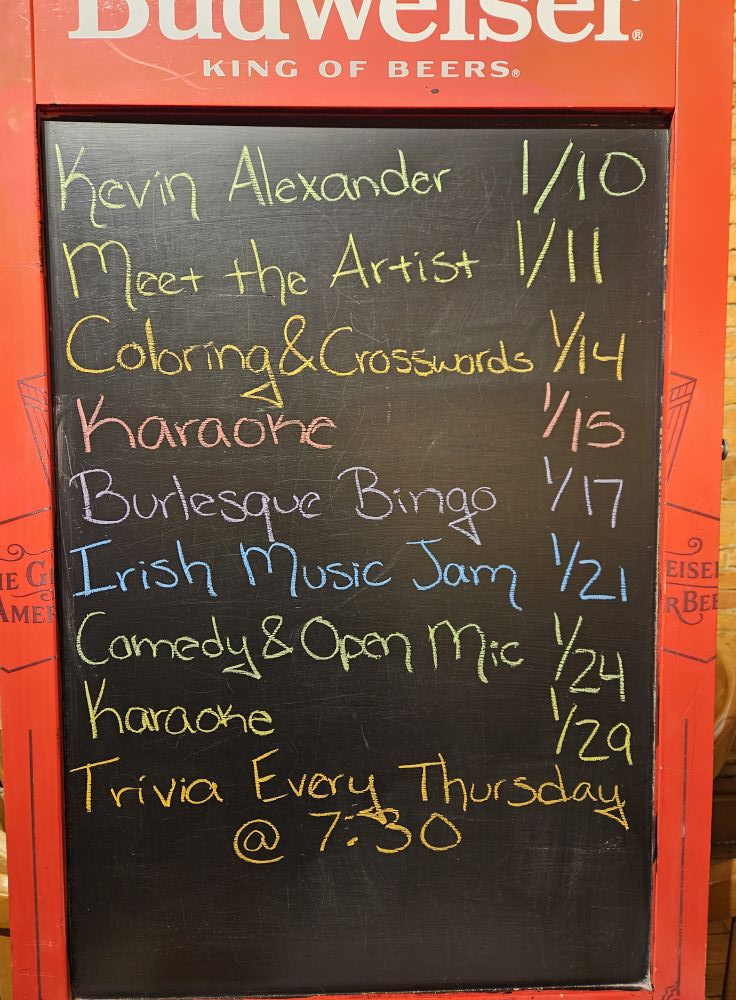 Budweiser®
KING OF BEERS®
Kevin Alexander 1/10
Meet the Artist 1/11
Coloring & Crosswords 1/14
Karaoke 1/15
Burlesque Bingo 1/17
Irish Music Jam 1/21
Comedy & Open Mic 1/24
Karaoke 1/29
Trivia Every Thursday
@ 7:30